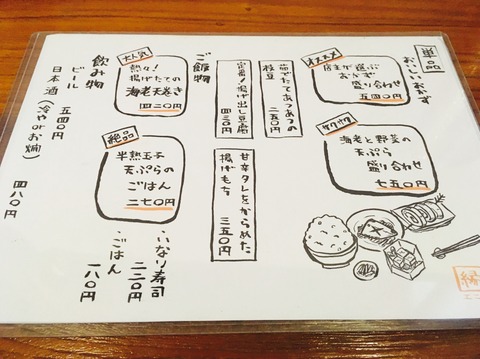 単品
おいしいおかず
オススメ
店主が選ぶ
おかず
盛り合わせ
五四〇円
サクサク
海老と野菜の
天ぷら
盛り合わせ
七五〇円
茹でたてあつあつの
枝豆
二五〇円
定番!揚げ出し豆腐
四三〇円
甘辛タレをからめた
揚げもち
三五〇円
ご飯物
大人気
熱々!
揚げたての
海老天巻き
四三〇円
絶品
半熟玉子
天ぷらの
ごはん
二七〇円
・いなり寿司
二二〇円
・ごはん
一八〇円
飲み物
ビール
五四〇円
日本酒(冷やorお燗)
四八〇円
縁